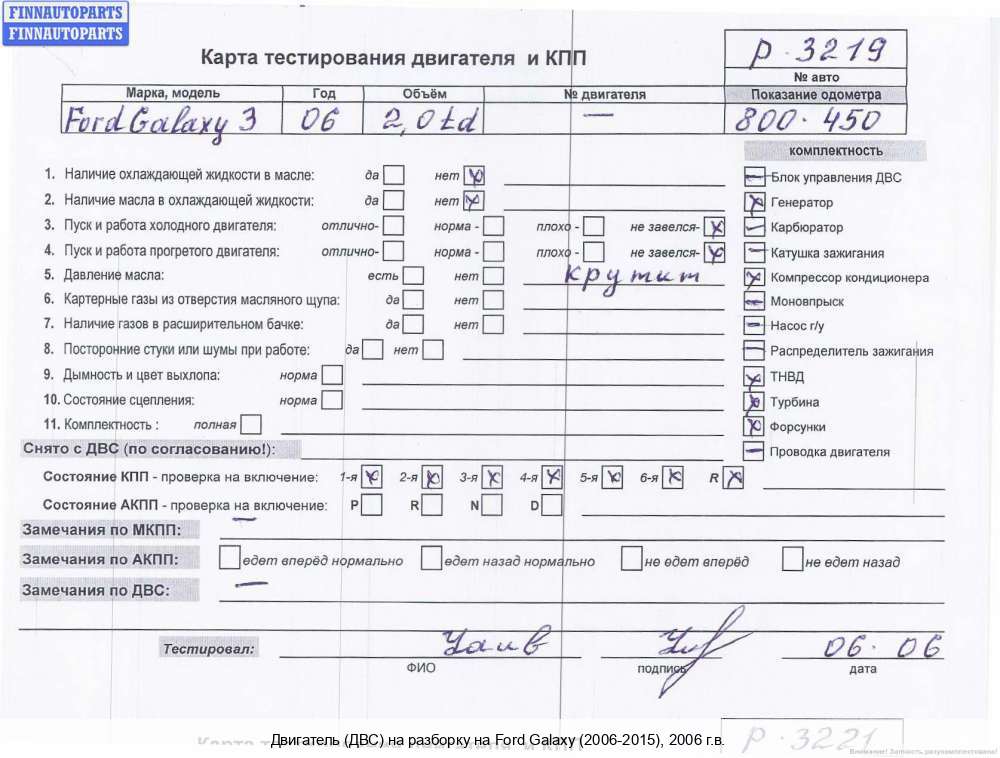 FINNAUTOPARTS
FINNAUTOPARTS
Карта тестирования двигателя и КПП
р-3219
№ авто
Марка, модель Год Объём № двигателя Показание одометра
Ford Galaxy 3 06 2,0td — 800-450
комплектность
1. Наличие охлаждающей жидкости в масле: да нет
Блок управления ДВС
2. Наличие масла в охлаждающей жидкости: да нет
Генератор
3. Пуск и работа холодного двигателя: отлично- норма - плохо - не завелся-
Карбюратор
4. Пуск и работа прогретого двигателя: отлично- норма - плохо - не завелся-
Катушка зажигания
5. Давление масла: есть нет крутит
Компрессор кондиционера
6. Картерные газы из отверстия масляного щупа: да нет
Моновпрыск
7. Наличие газов в расширительном бачке: да нет
Насос г/у
8. Посторонние стуки или шумы при работе: да нет
Распределитель зажигания
9. Дымность и цвет выхлопа: норма
ТНВД
10. Состояние сцепления: норма
Турбина
11. Комплектность : полная
Форсунки
Снято с ДВС (по согласованию!):
Проводка двигателя
Состояние КПП - проверка на включение: 1-я 2-я 3-я 4-я 5-я 6-я R
Состояние АКПП - проверка на включение: P R N D
Замечания по МКПП: —
Замечания по АКПП: едет вперёд нормально едет назад нормально не едет вперёд не едет назад
Замечания по ДВС: —
Тестировал: 06.06
ФИО подпись дата
Двигатель (ДВС) на разборку на Ford Galaxy (2006-2015), 2006 г.в.
р-3221
Внимание! Запчасть разукомплектована!